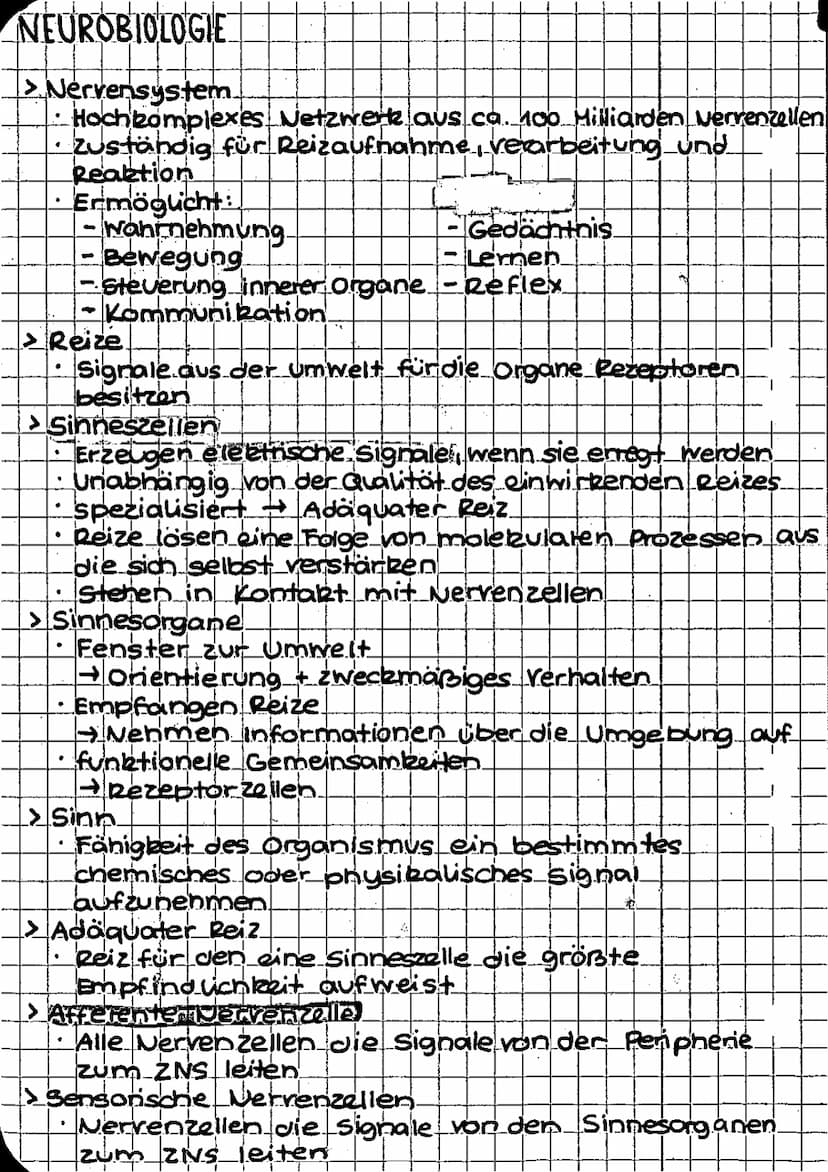 NEUROBIOLOGIE
> Nervensystem
· Hochkomplexes Netzwerk aus ca. 100 Milliarden Nervenzellen
· Zuständig für Reizaufnahme, verarbeitung und
Reaktion
· Ermöglicht:
- Wahrnehmung - Gedächtnis
- Bewegung - Lernen
- Steuerung innerer Organe - Reflex
- Kommunikation
> Reize
· Signale aus der Umwelt für die Organe Rezeptoren
besitzen
> Sinneszellen
· Erzeugen elektrische Signale, wenn sie erregt werden
· Unabhängig von der Qualität des einwirkenden Reizes
· spezialisiert → Adäquater Reiz
· Reize lösen eine Folge von molekularen Prozessen aus
die sich selbst verstärken
· Stehen in Kontakt mit Nervenzellen
> Sinnesorgane
· Fenster zur Umwelt
→ Orientierung + zweckmäßiges Verhalten
· Empfangen Reize
→ Nehmen Informationen über die Umgebung auf
· funktionelle Gemeinsamkeiten
→ Rezeptorzellen
> Sinn
· Fähigkeit des Organismus ein bestimmtes
chemisches oder physikalisches Signal
aufzunehmen
> Adäquater Reiz
· Reiz für den eine Sinneszelle die größte
Empfindlichkeit aufweist
> Afferente Nervenzelle
· Alle Nervenzellen die Signale von der Peripherie
zum ZNS leiten
> Sensorische Nervenzellen
· Nervenzellen die Signale von den Sinnesorganen
zum ZNS leiten